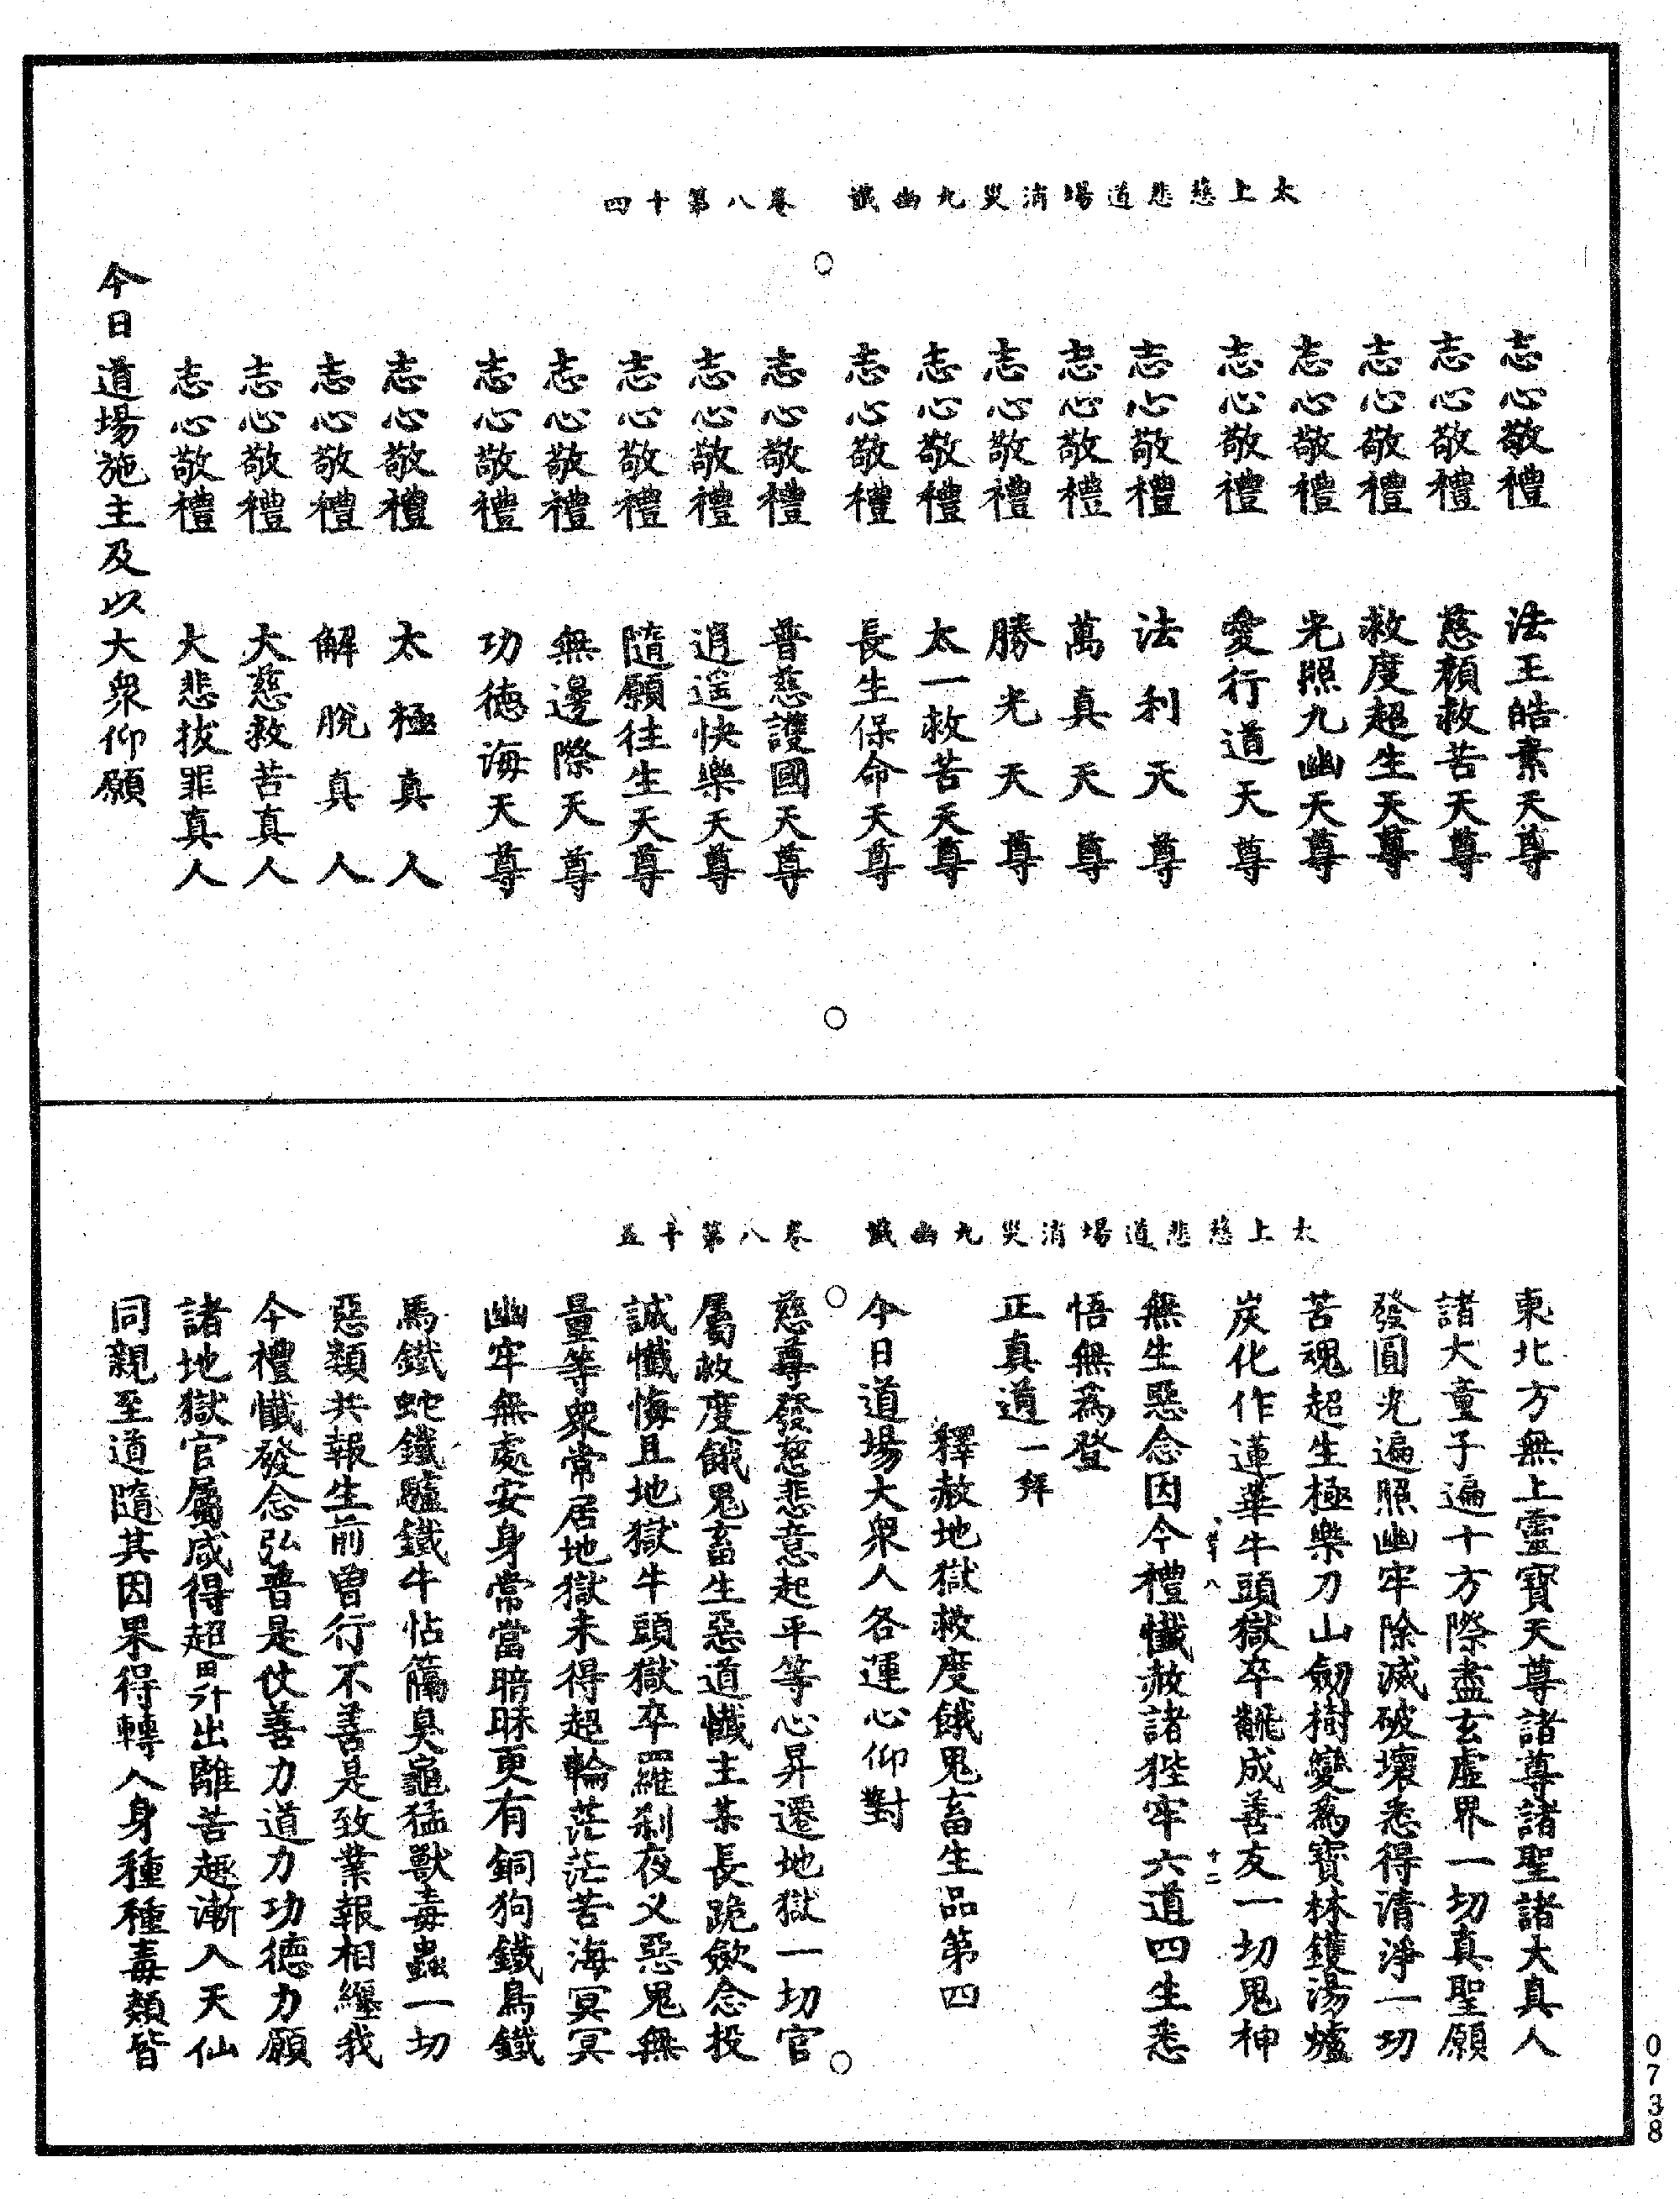 太上慈悲道場消災九幽懺　卷八第十四
志心敬禮　法王皓素天尊
志心敬禮　慈顏救苦天尊
志心敬禮　救度超生天尊
志心敬禮　光照九幽天尊
志心敬禮　愛行道天尊
志心敬禮　法利天尊
志心敬禮　萬真天尊
志心敬禮　勝光天尊
志心敬禮　太一救苦天尊
志心敬禮　長生保命天尊
志心敬禮　普慈護國天尊
志心敬禮　逍遙快樂天尊
志心敬禮　隨願往生天尊
志心敬禮　無邊際天尊
志心敬禮　功德海天尊
志心敬禮　太極真人
志心敬禮　解脫真人
志心敬禮　大慈救苦真人
志心敬禮　大悲拔罪真人
今日道場施主及以大衆仰願
太上慈悲道場消災九幽懺　卷八第十五
東北方無上靈寶天尊諸尊諸聖諸大真人
諸大童子遍十方際盡玄虛界一切真聖願
發圓光遍照幽牢除滅破壞悉得清淨一切
苦魂超生極樂刀山劒樹變為寶林鑊湯爐
炭化作蓮華牛頭獄卒翻成善友一切鬼神
無生惡念因今禮懺赦諸狴牢六道四生悉
悟無為登
正真道一拜
釋赦地獄救度餓鬼畜生品第四
今日道場大衆人各運心仰對
慈尊發慈悲意起平等心昇遷地獄一切官
屬救度餓鬼畜生惡道懺主某長跪斂念投
誠懺悔且地獄牛頭獄卒羅刹夜叉惡鬼無
量等衆常居地獄未得超輪茫茫苦海冥冥
幽牢無處安身常當暗昧更有銅狗鐵鳥鐵
馬鐵蛇鐵驢鐵牛帖鷹臭龜猛獸毒蟲一切
惡類共報生前曾行不善是致業報相纏我
今禮懺發念弘普是仗善力道力功德力願
諸地獄官屬咸得超昇出離苦趣漸入天仙
同親至道隨其因果得轉人身種種毒類皆
0738